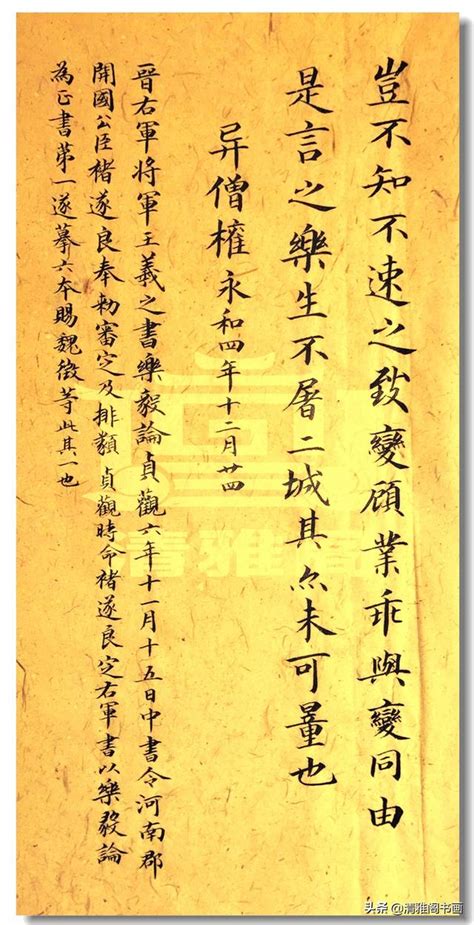 豈不知不速之致變顧業乖與變同由
是言之樂生不屠二城其亦未可量也
异僧權永和四年十二月廿四
晉右軍將軍王羲之書樂毅論貞觀六年十一月十五日中書令河南郡
開國公臣褚遂良奉勅審定及排類貞觀時命褚遂良定右軍書以樂毅論
為正書第一遂摹六本賜魏徵等此其一也
清雅閣
头条 @清雅阁书画